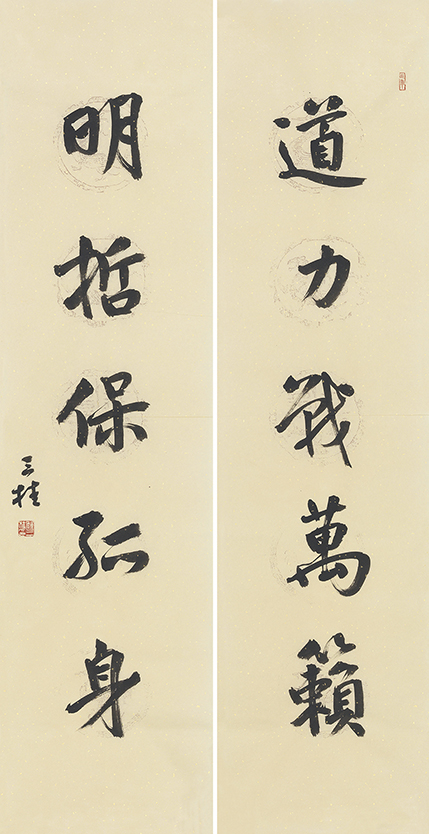 道力戰萬籟
明哲保孤身
三桂